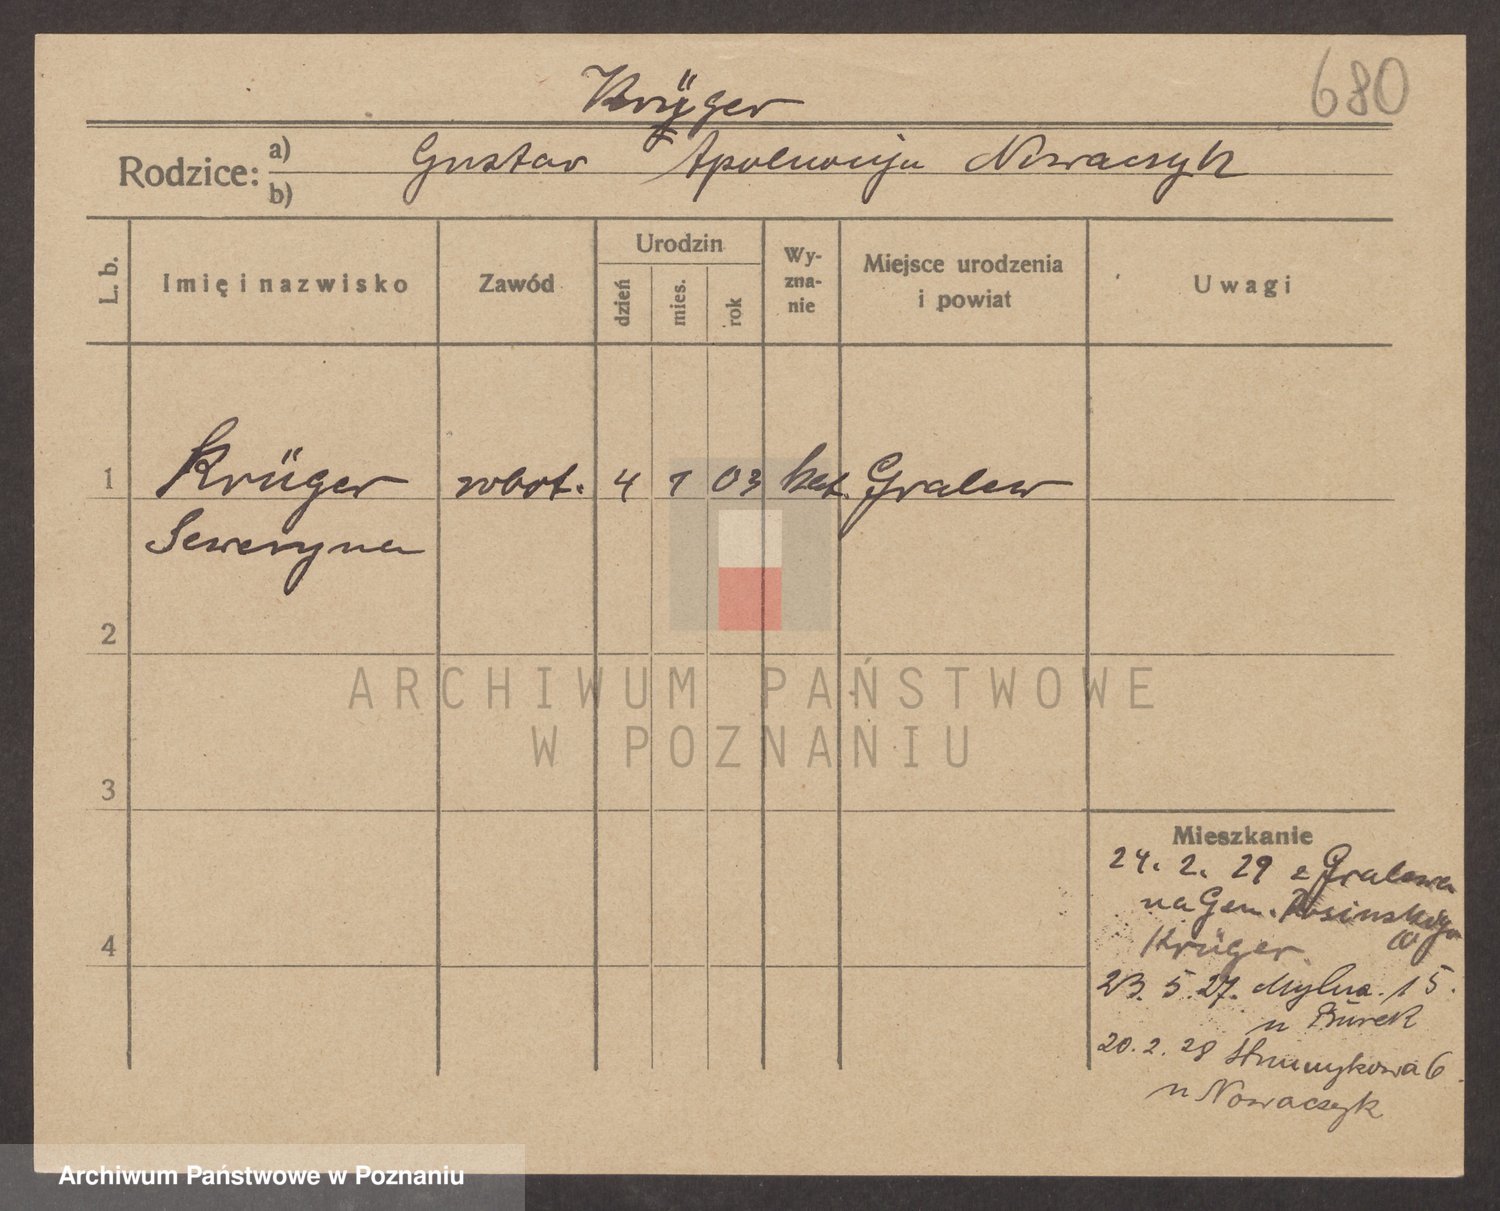 680
Krüger
Rodzice: a) b) Gustav Apolonija Nowaczyk
L. b. Imię i nazwisko Zawód Urodzin dzień mies. rok Wyznanie Miejsce urodzenia i powiat Uwagi
1 Krüger robot. 4 1 03 kat. Gralew
Seweryna
2
ARCHIWUM PAŃSTWOWE
W POZNANIU
3
Mieszkanie
24. 2. 29 z Gralewa
na Gen.
4
Krüger
23. 5. 27. Mylna. 15.
u Burek
20. 2. 28 6.
u Nowaczyk
Archiwum Państwowe w Poznaniu